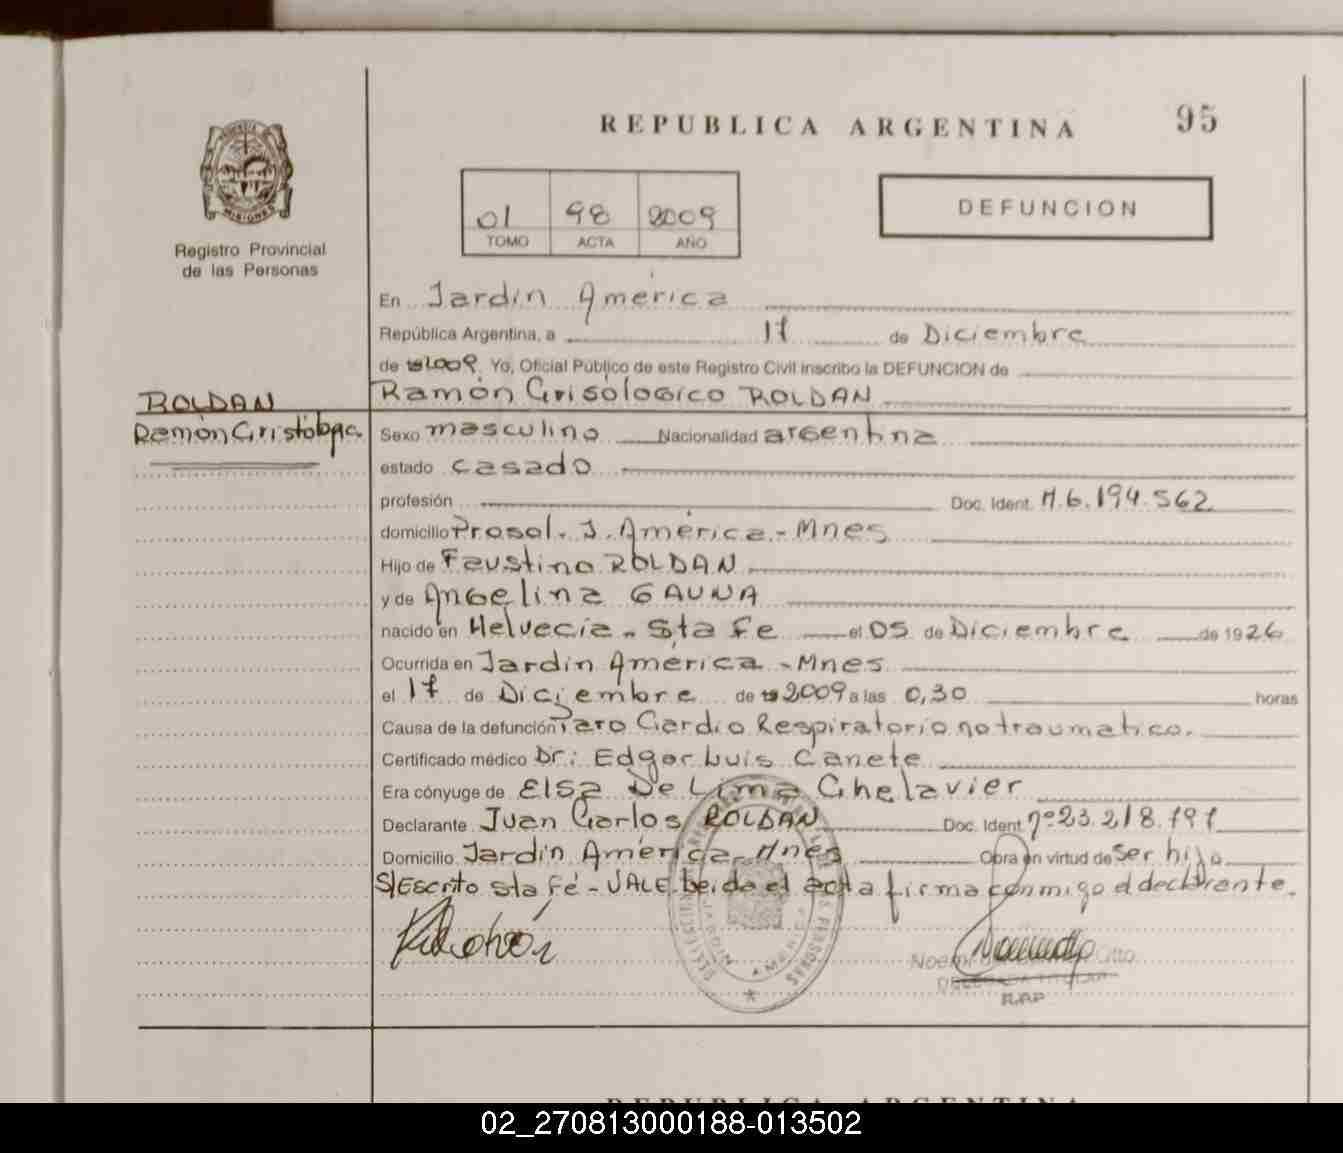 REPUBLICA ARGENTINA
95
MISIONES
Registro Provincial
de las Personas
01 98 2009
TOMO ACTA AÑO
DEFUNCION
En Jardín America
República Argentina, a 17 de Diciembre
de 2009. Yo, Oficial Público de este Registro Civil inscribo la DEFUNCION de
Ramón Crisólogico ROLDAN
ROLDAN
Ramón
Sexo masculino Nacionalidad argentina
estado casado
profesión Doc. Ident. M.6.194.562
domicilio Prosol. J. América.-Mnes
Hijo de Faustino ROLDAN
y de Angelina GAUNA
nacido en Helvecia. Sta Fe el 05 de Diciembre de 1926
Ocurrida en Jardín América -Mnes
el 17 de Diciembre de 2009 a las 0,30 horas
Causa de la defunción Paro Cardio Respiratorio no traumatico.
Certificado médico Dr: Edgar Luis Canete
Era cónyuge de Elsa De Lima Chelavier
Declarante Juan Carlos ROLDAN Doc. Ident. nº 23.218.797
Domicilio Jardín América. Mnes Obra en virtud de ser hijo
S/Escrito sta Fé - VALE. Leida el acta firma conmigo el declarante.
JARDIN AMERICA
Noemí
DELEGADA TITULAR
R.P.P
REPUBLICA ARGENTINA
02_270813000188-013502